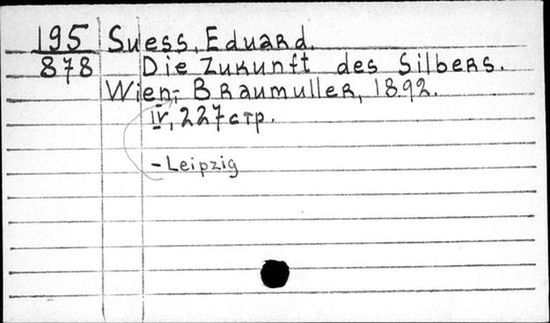 195 Suess, Eduard.
878 Die Zukunft des Silbers.
Wien,- Braumuller, 1892.
IV, 227 стр.
- Leipzig